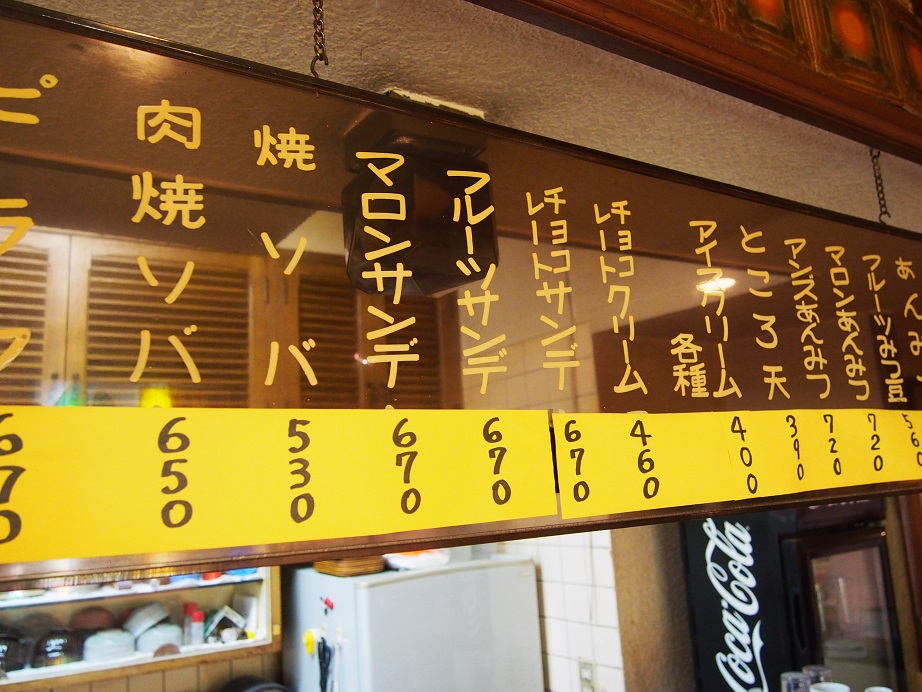 あんみつ
フルーツみつ豆
マロンあんみつ
アンズあんみつ
ところ天
アイスクリーム
各種
チョコレートクリーム
チョコレートサンデー
フルーツサンデー
マロンサンデー
焼ソバ
肉焼ソバ
ピラフ
560
720
720
390
400
460
670
670
670
530
650
670
Coca-Cola